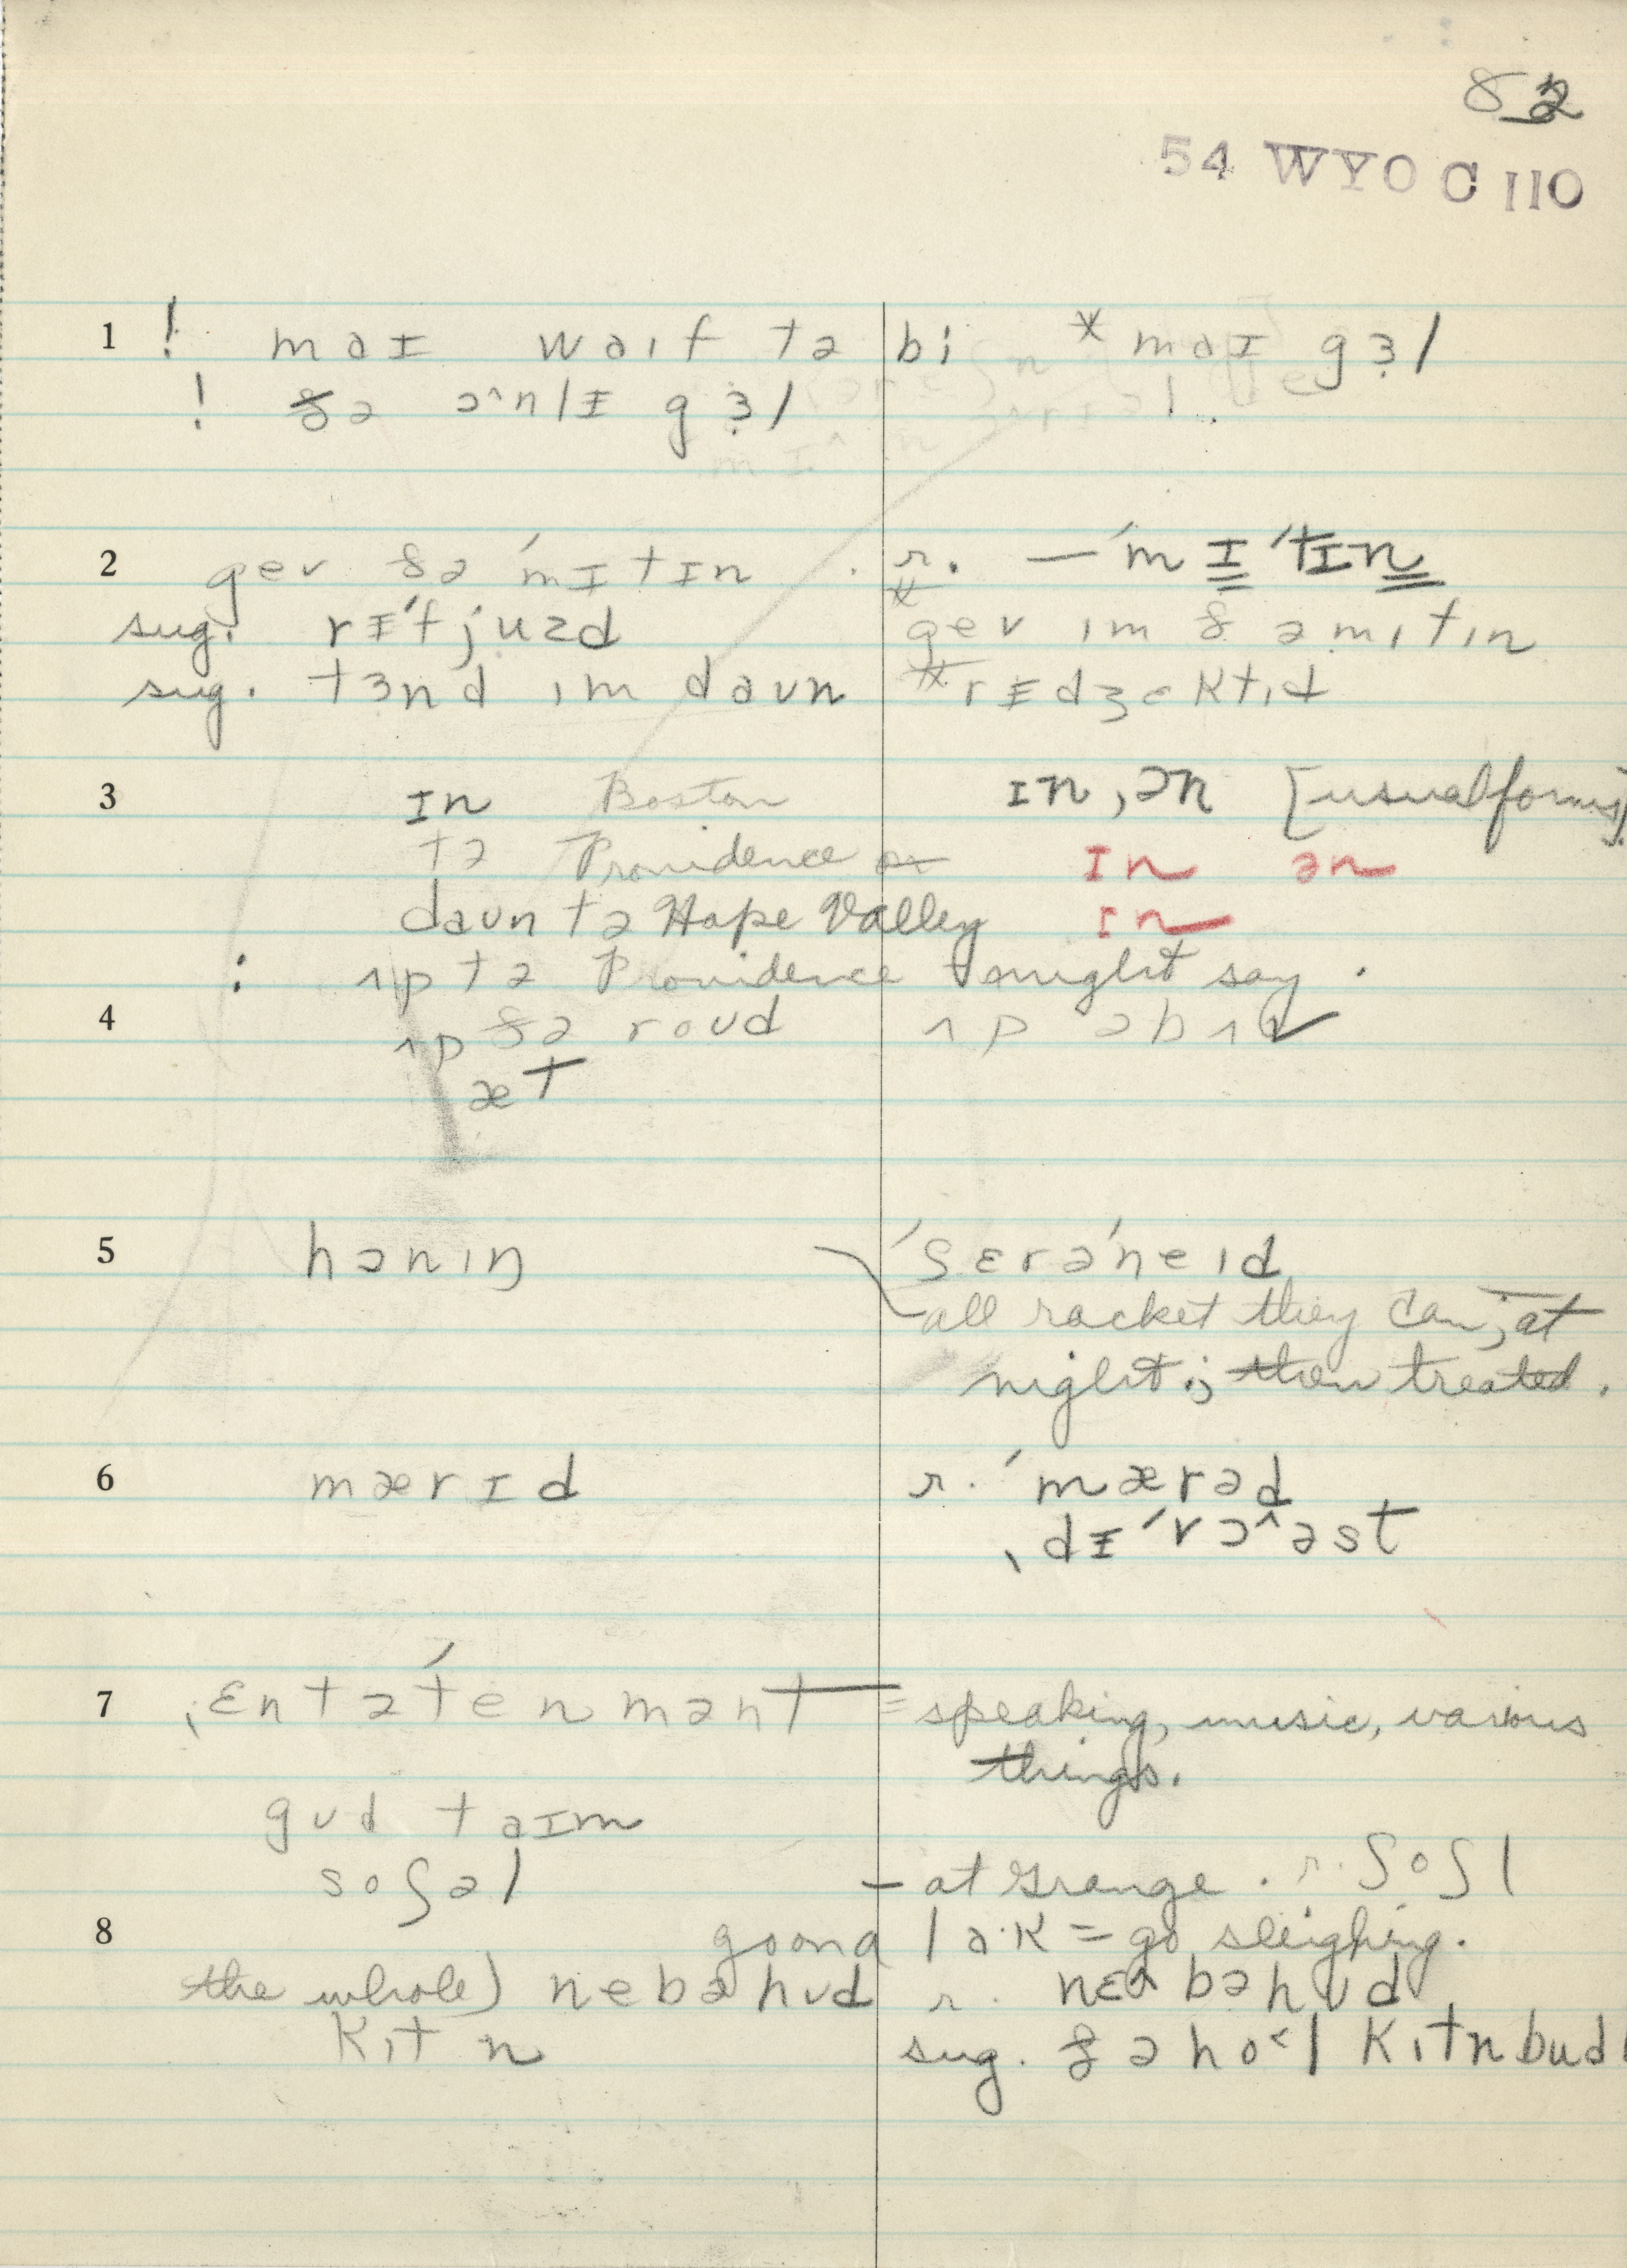 82
54 WYO C 110
1 ! maɪ waɪf tə bi * maɪ gɜl
! ðə ənlɪ gɜl
2 gev ðə ˈmɪtɪn . r. — ˈmɪˈtɪn
sug. rɪˈfjuzd * gev ɪm ðə mɪtɪn
sug. tɜnd ɪm daʊn * rɪdʒektɪd
3 ɪn Boston ɪn, ən [usual forms]
tə Providence or ɪn ən
daʊn tə Hope Valley ɪn
: ʌp tə Providence might say.
4 ʌp ðə roʊd ʌp əbʌv
æt
5 hənɪŋ ˈsɛrəˈneɪd
all racket they can, at
night; then treated.
6 mærɪd r. ˈmærəd
ˌdɪˈvɔ^əst
7 ˌɛntəˈtenmənt = speaking, music, various
things.
gʊd taɪm
soʃəl – at Grange. r. ʃoʃl
8 goənə laˑk = go sleighing.
the whole) nebəhʊd r. nɛ^bəhʊd
kɪtn sug. ðə ho<l kɪtnbud